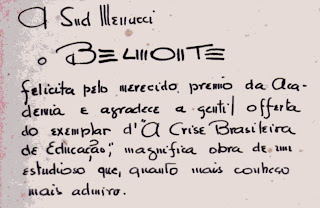 A Sud Mennucci
o BELMONTE
felicita pelo merecido premio da Aca-
demia e agradece a gentil offerta
do exemplar d'"A Crise Brasileira
de Educação", magnifica obra de um
estudioso que, quanto mais conheço
mais admiro.